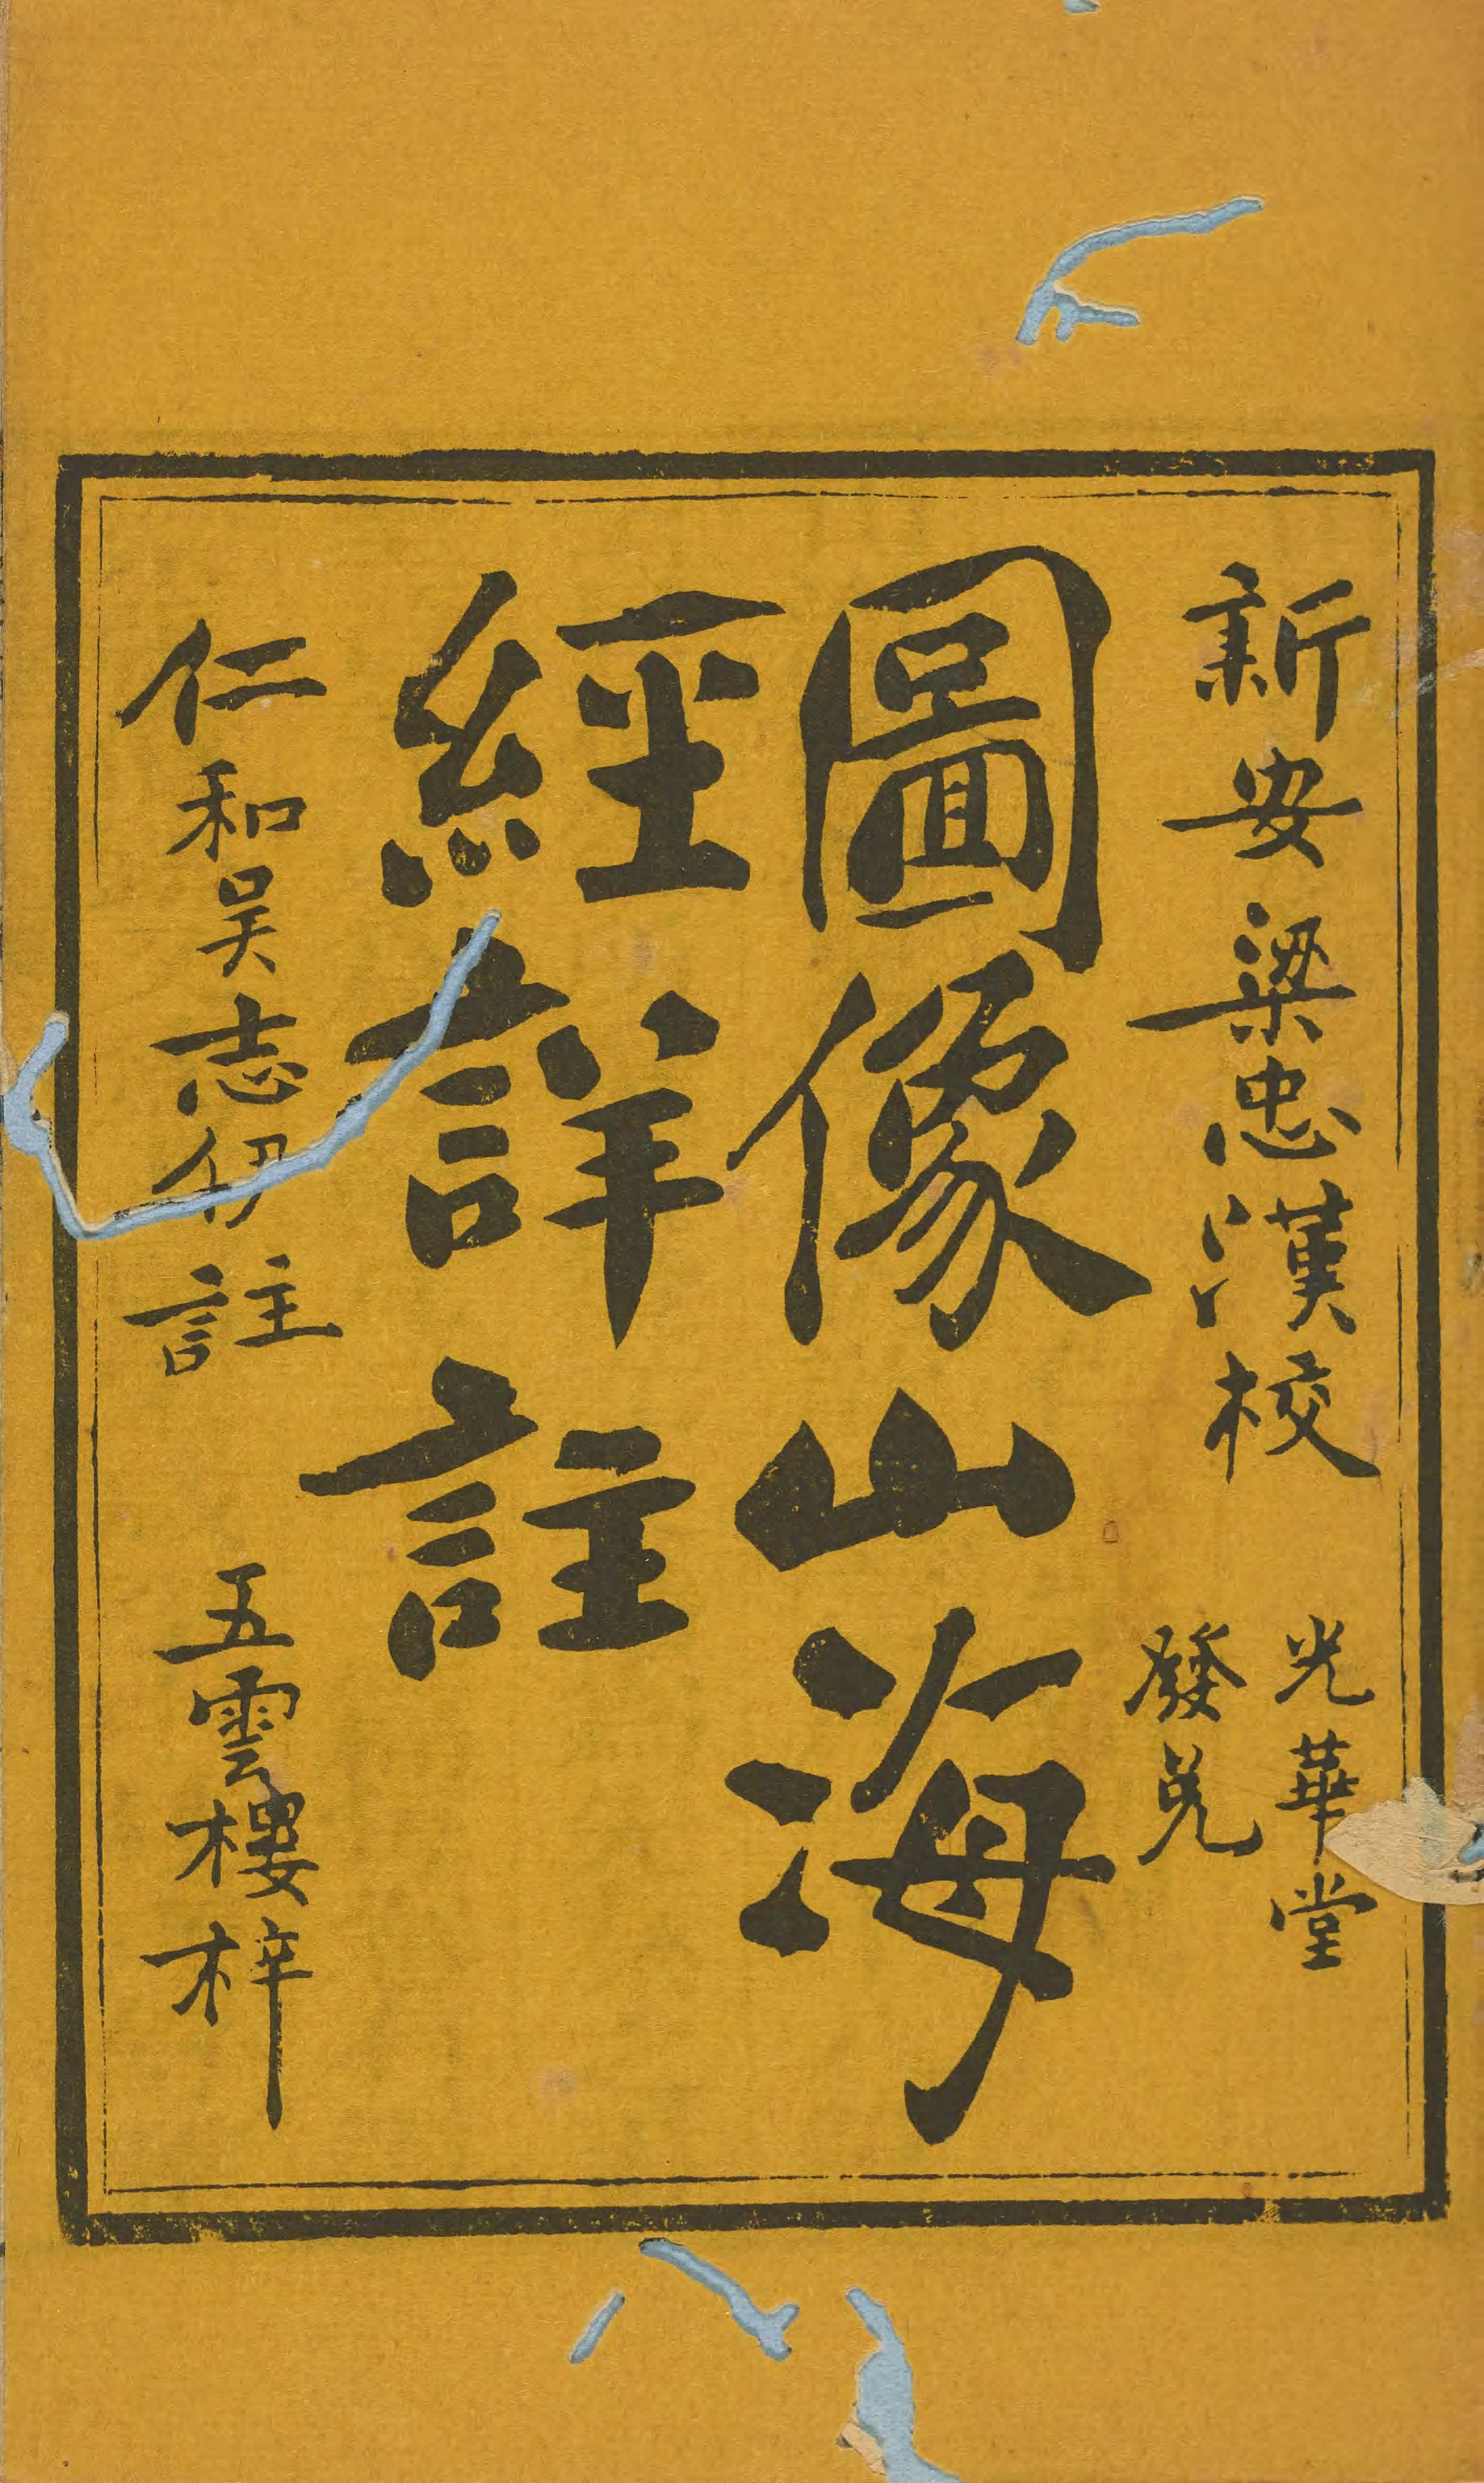 新安梁忠漢校
光華堂
發兌
圖像山海
經詳註
仁和吴志伊註
五雲樓梓